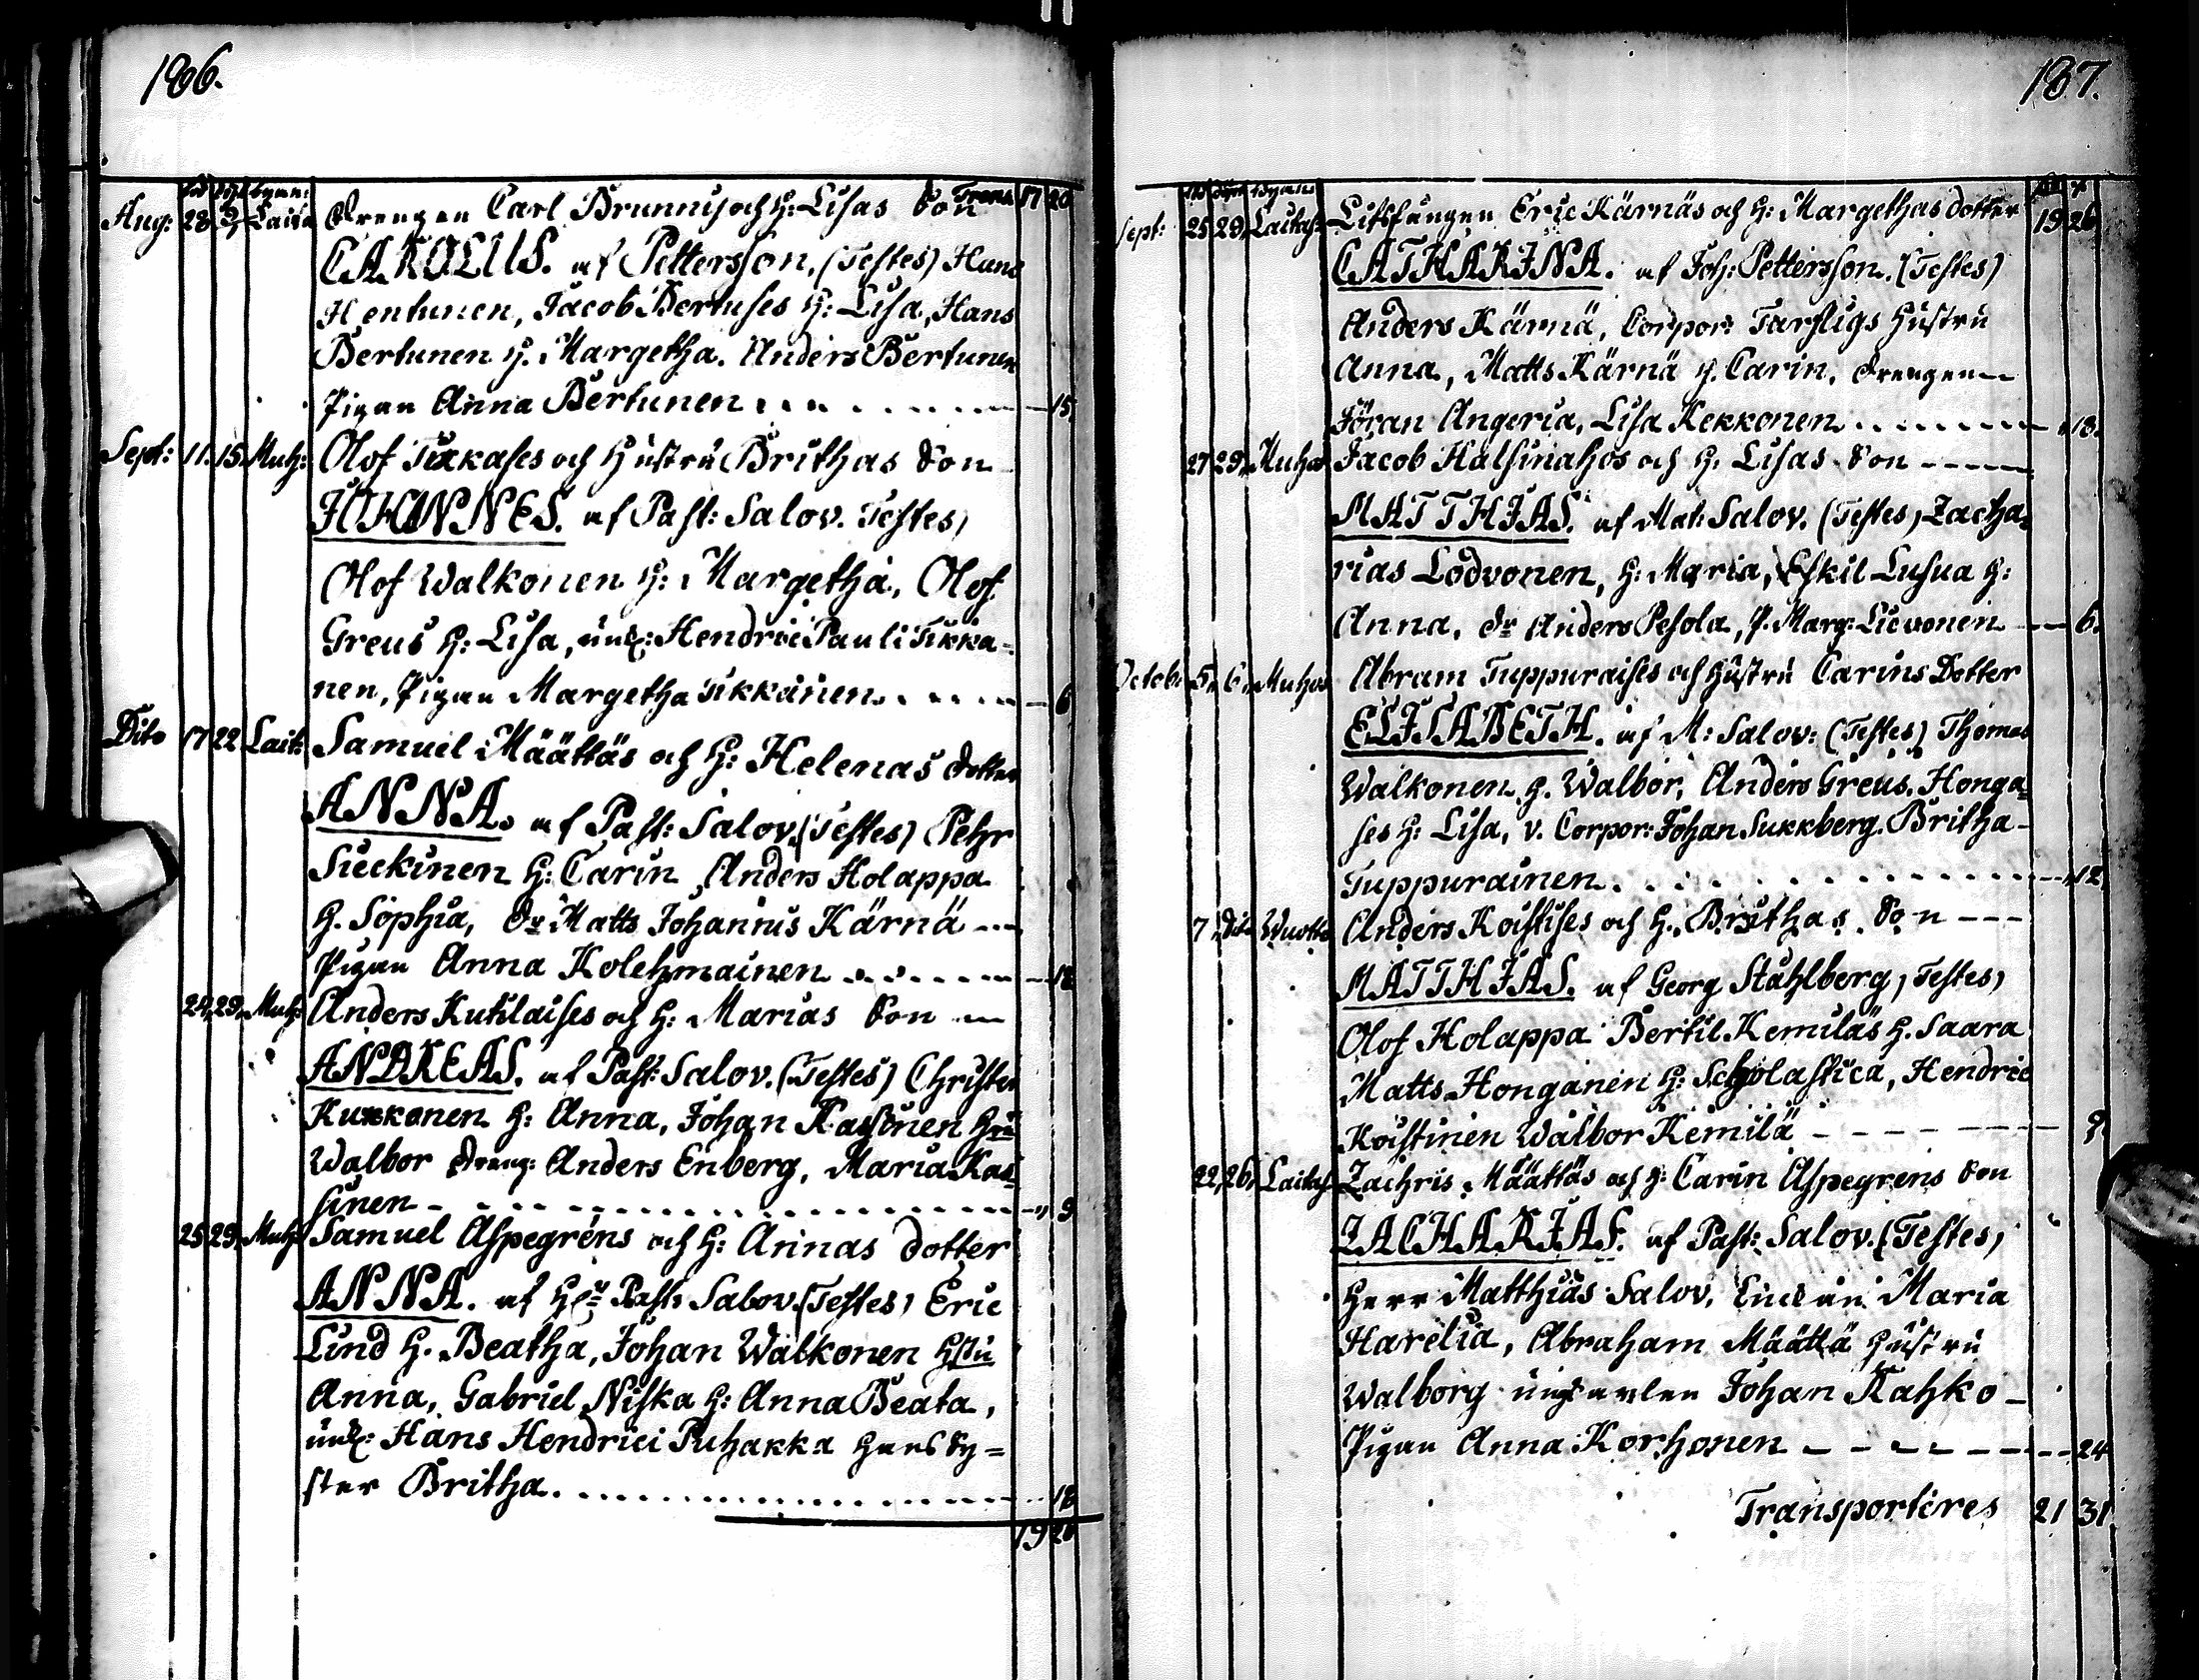 186.
född döpt byen: Trans 17 20
Aug: 28 Lais Drengen Carl Brunnis och H: Lisas Son
CAROLUS. af Pettersson, (Testes) Hans
Hentunen, Jacob Bertuses H: Lisa, Hans
Bertunen H. Margetha. Anders Bertunen
Pigan Anna Bertunen 15
Sept: 11. 15. Muh: Olof Tikkases och Hustru Brithas Son
JOHANNES. af Past: Salov. Testes)
Olof Walkonen H: Margetha, Olof
Greus H: Lisa, ungk: Hendric Pauli Tikka=
nen, Pigan Margetha Tikkanen 6
Dito 17 22 Lait: Samuel Määttäs och H: Helenas dotter
ANNA. af Past: Salov. (Testes) Pehr
Sieckinen H: Carin, Anders Holappa
H. Sophia, dr Matts Johannis Kärnä
Pigan Anna Kolehmainen 18
24, 29, Muh: Anders Kutilaises och H: Marias Son
ANDREAS. af Past: Salov. (Testes) Christer
Kukkonen H: Anna, Johan Kassinen Hu
Walbor dreng: Anders Enberg, Maria Kas=
sinen 9
25 29, Muh: Samuel Aspegréns och H: Annas dotter
ANNA. af Hr Past: Salov. (Testes) Eric
Lind H. Beatha, Johan Walkonen Hstu
Anna, Gabriel Niska H: Anna Beata,
ungk: Hans Hendrici Puhakka Hans Sy=
ster Britha. 18
19 26
187.
Sept: 25 29, Laitas: Litsfången Eric Kärnäs och H: Margethas dotter 19 26
CATHARINA. af Joh: Pettersson. (Testes)
Anders Kärnä, Corpor: Tarfligs Hustru
Anna, Matts Kärnä H. Carin, drengen
Jöran Angeria, Lisa Kekkonen 18.
27 29, Muhos Jacob Halsinahos och H. Lisas Son
MATTHIAS. af Mat: Salov. (Testes) Zacha=
rias Lodvonen, H: Maria, Eskil Lusua H:
Anna, dr Anders Pesola, P. Marg: Lievonen 6.
Octob: 5. 6. Muhos Abram Tuppuraises och Hustru Carins Dotter
ELISABETH. af M: Salov: (Testes) Thomas
Walkonen H. Walbor, Anders Greus. Honga=
ses H: Lisa, v. Corpor: Johan Sukkberg. Britha
Tuppurainen. 12
7, Dito Wuotto Anders Koistises och H. Brithas Son
MATTHIAS. af Georg Stahlberg, Testes)
Olof Holappa Bertil Kemiläs H. Saara
Matts Honganen H: Scholastica, Hendric
Koistinen Walbor Kemilä 9
22, 26, Laitas. Zachris Määttäs och H: Carin Aspegrens Son
ZACHARIAS. af Past: Salov. (Testes)
Herr Matthias Salov, Enkan Maria
Harelia, Abraham Määttä Hustru
Walborg ungkarlen Johan Kahko
Pigan Anna Korhonen 24
Transporteres 21 31